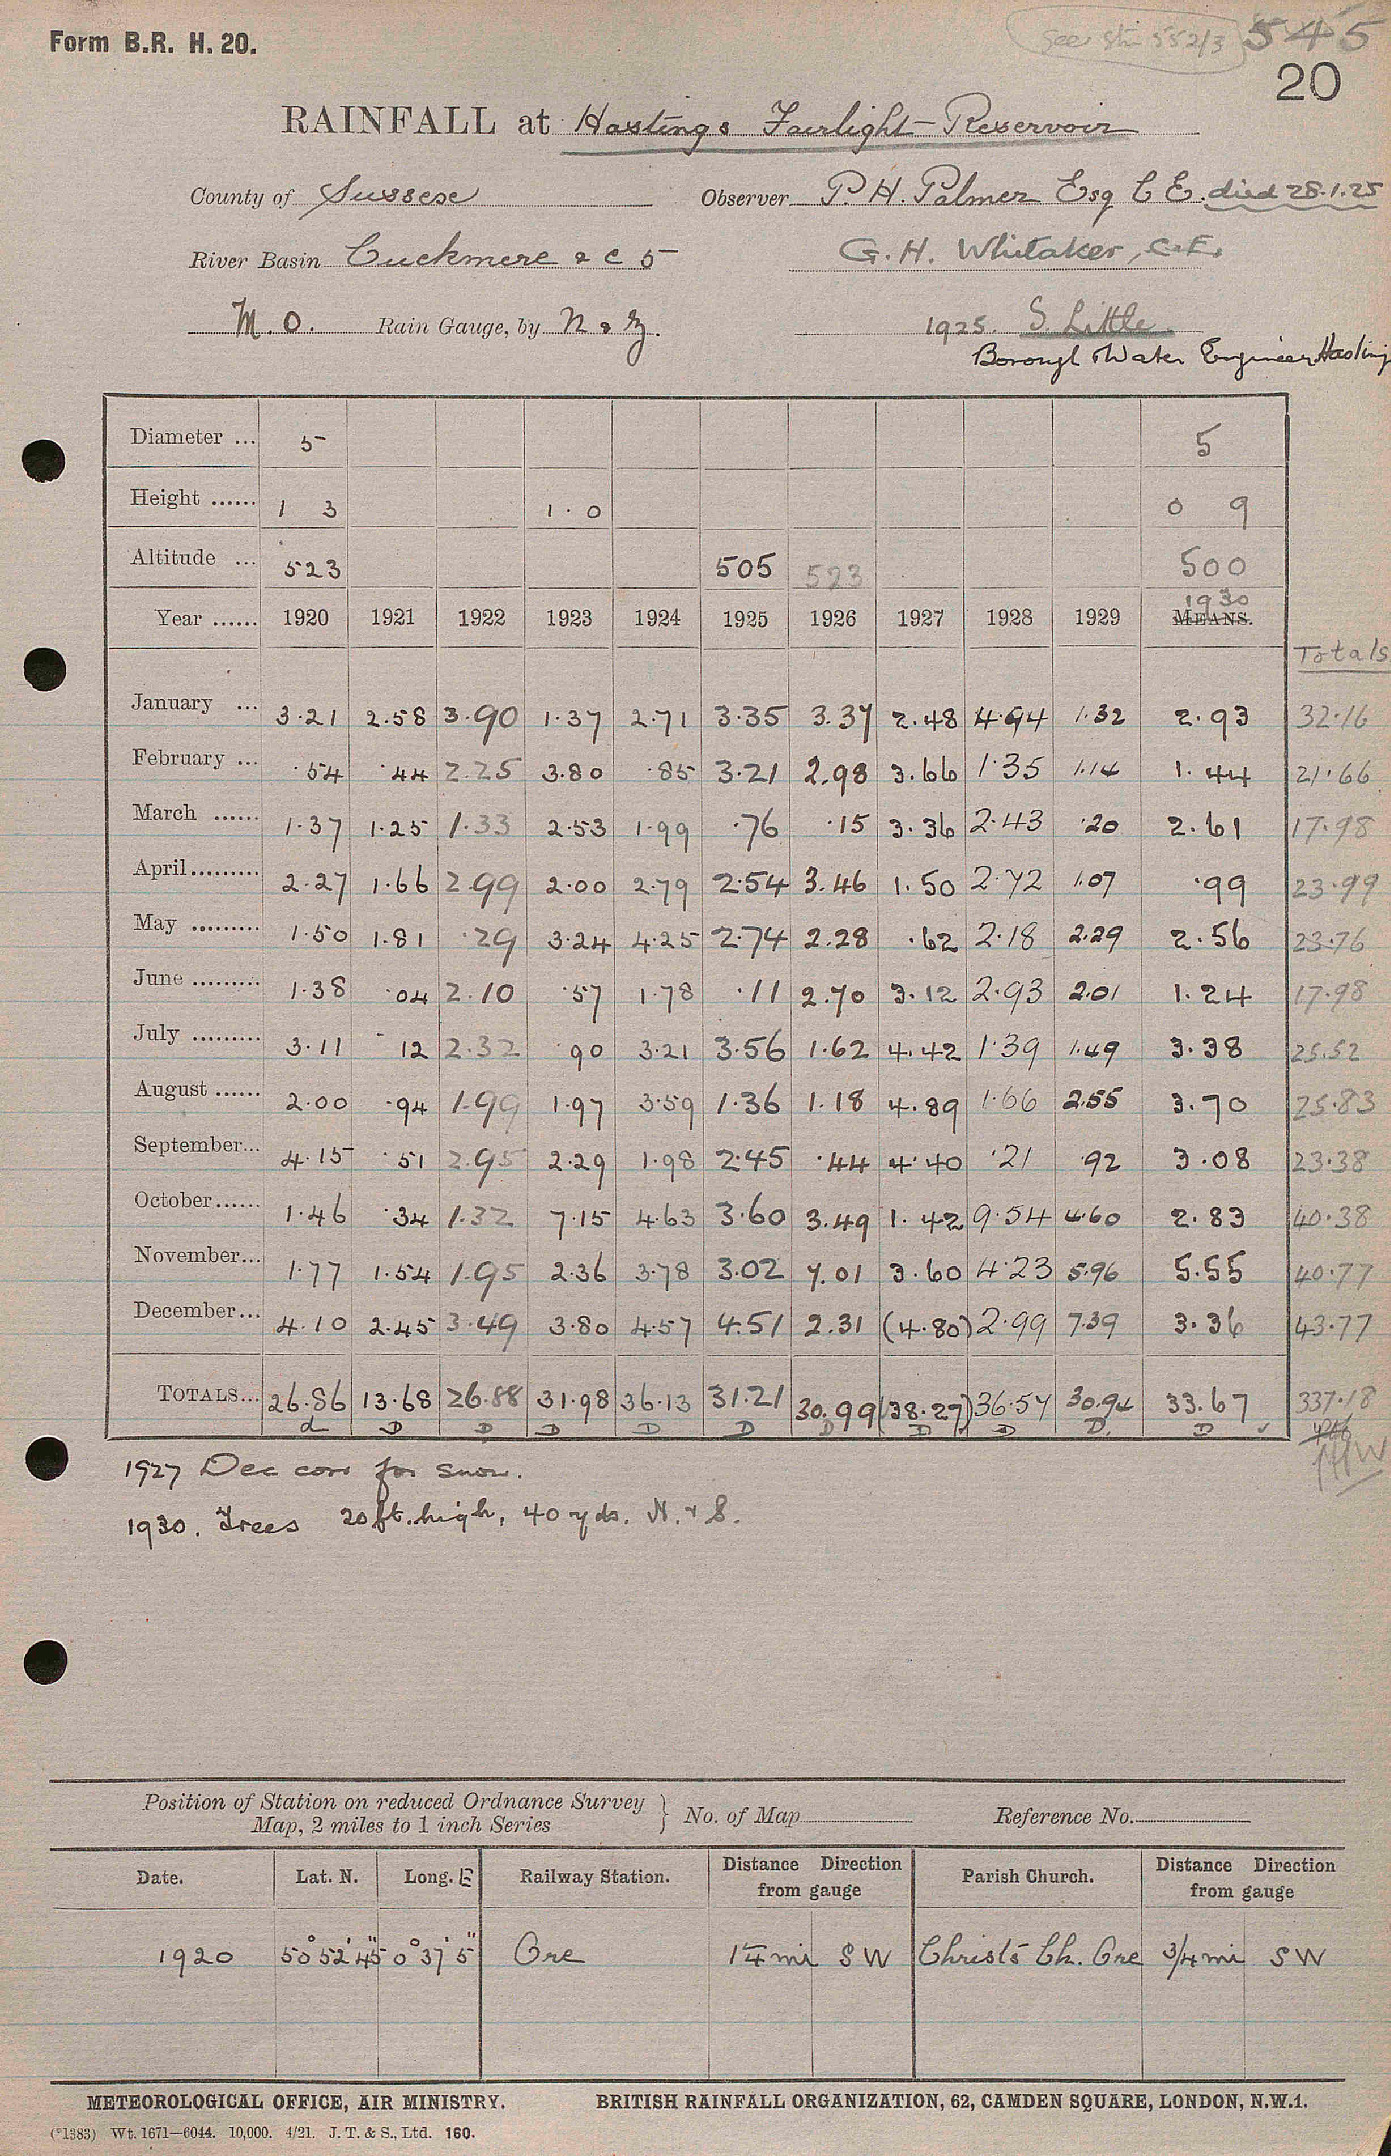 Form B.R. H. 20.
See Stn 552/3 545
20
RAINFALL at Hastings Fairlight Reservoir
County of Sussex Observer P. H. Palmer Esq C E. died 28.1.25
River Basin Cuckmere & c 5 G. H. Whitaker, C.E.
M. O. Rain Gauge, by N & Z. 1925. S. Little
Borough Water Engineer Hastings
Diameter ... 5 5
Height ...... 1 3 1 . 0 0 9
Altitude ... 523 505 523 500
1930
Year ...... 1920 1921 1922 1923 1924 1925 1926 1927 1928 1929 MEANS.
Totals
January ... 3.21 2.58 3.90 1.37 2.71 3.35 3.37 2.48 4.94 1.32 2.93 32.16
February ... .54 .44 2.25 3.80 .85 3.21 2.98 3.66 1.35 1.14 1.44 21.66
March ...... 1.37 1.25 1.33 2.53 1.99 .76 .15 3.36 2.43 .20 2.61 17.98
April ......... 2.27 1.66 2.99 2.00 2.79 2.54 3.46 1.50 2.72 1.07 .99 23.99
May ......... 1.50 1.81 .29 3.24 4.25 2.74 2.28 .62 2.18 2.29 2.56 23.76
June ......... 1.38 .04 2.10 .57 1.78 .11 2.70 3.12 2.93 2.01 1.24 17.98
July ......... 3.11 .12 2.32 .90 3.21 3.56 1.62 4.42 1.39 1.49 3.38 25.52
August ...... 2.00 .94 1.99 1.97 3.59 1.36 1.18 4.89 1.66 2.55 3.70 25.83
September... 4.15 .51 2.95 2.29 1.98 2.45 .44 4.40 .21 .92 3.08 23.38
October...... 1.46 .34 1.32 7.15 4.63 3.60 3.49 1.42 9.54 4.60 2.83 40.38
November... 1.77 1.54 1.95 2.36 3.78 3.02 7.01 3.60 4.23 5.96 5.55 40.77
December... 4.10 2.45 3.49 3.80 4.57 4.51 2.31 (4.80) 2.99 7.39 3.36 43.77
TOTALS... 26.86 13.68 26.88 31.98 36.13 31.21 30.99 (38.27) 36.57 30.94 33.67 337.18
d D D D D D D D D D. D ✓
1927 Dec corr for snow.
1930. Trees 20 ft. high, 40 yds. N. & S.
Position of Station on reduced Ordnance Survey
Map, 2 miles to 1 inch Series } No. of Map Reference No.
Date. Lat. N. Long. E Railway Station. Distance Direction from gauge Parish Church. Distance Direction from gauge
1920 50° 52' 45" 0° 37' 5" Ore 1¼ mi S W Christ's Ch. Ore 3/4 mi S W
METEOROLOGICAL OFFICE, AIR MINISTRY. BRITISH RAINFALL ORGANIZATION, 62, CAMDEN SQUARE, LONDON, N.W.1.
(*1383) Wt. 1671—6044. 10,000. 4/21. J. T. & S., Ltd. 160.